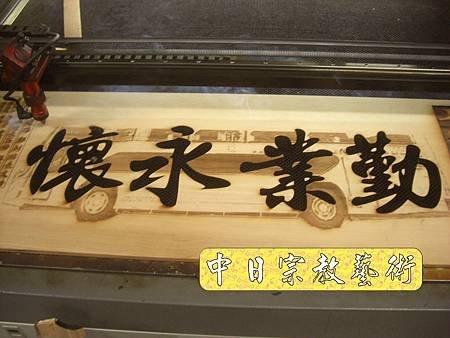 勤業永懷
中日宗教藝術